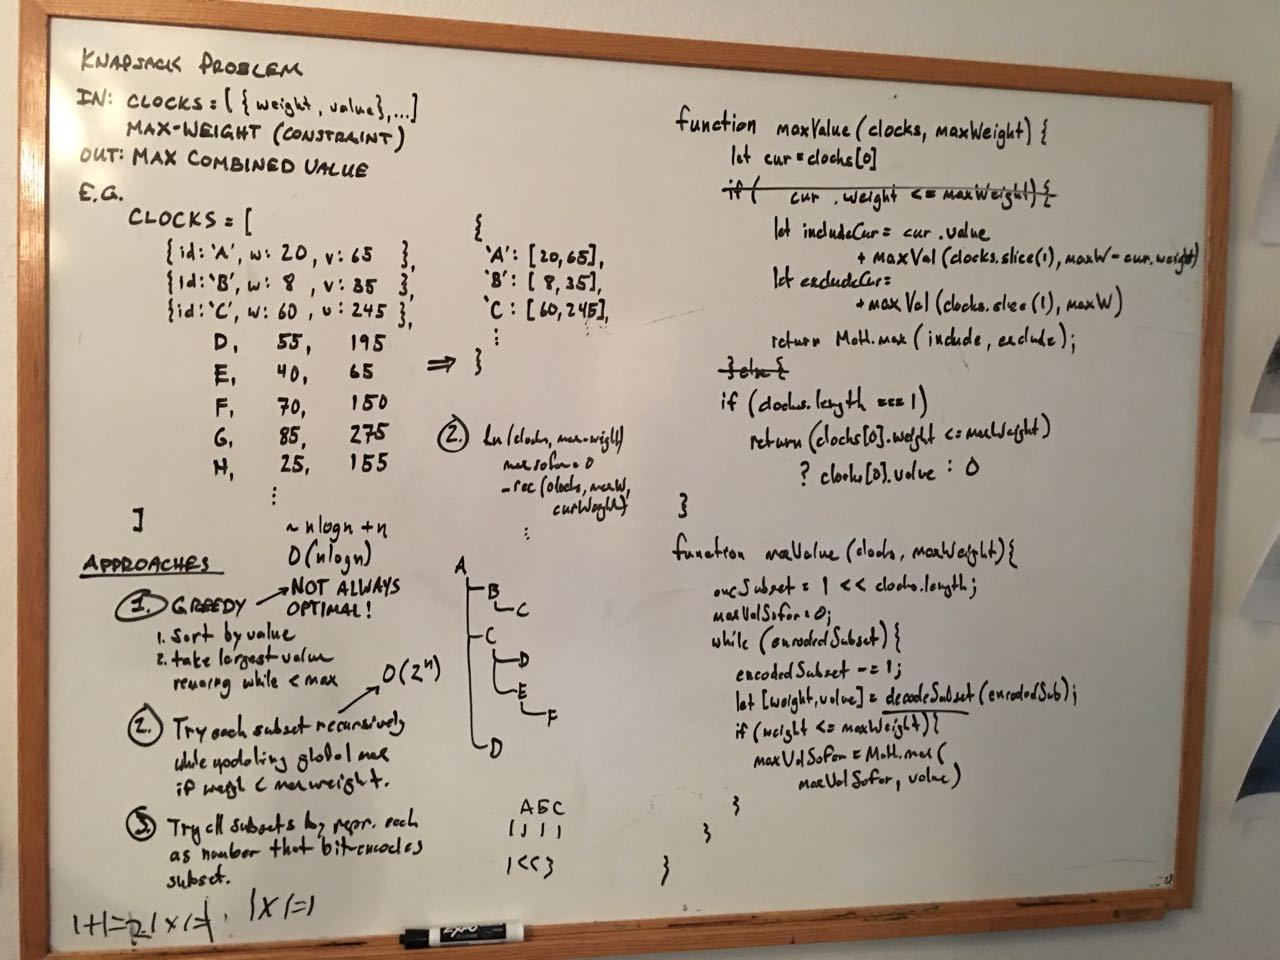 KNAPSACK PROBLEM
IN: CLOCKS = [ { weight, value }, ... ]
MAX-WEIGHT (CONSTRAINT)
OUT: MAX COMBINED VALUE
E.G.
CLOCKS = [
{ id: 'A', w: 20, v: 65 },
{ id: 'B', w: 8, v: 35 },
{ id: 'C', w: 60, v: 245 },
D, 55, 195
E, 40, 65
F, 70, 150
G, 85, 275
H, 25, 155
⋮
]
⇒
{
'A': [20, 65],
'B': [8, 35],
'C': [60, 245],
⋮
}
~ n log n + n
O(n log n)
APPROACHES
1. GREEDY → NOT ALWAYS
OPTIMAL!
1. Sort by value
2. take largest value
remaing while < max
O(2ⁿ)
2. Try each subset recursively
while updating global max
if weigh < maxweight.
3. Try all subsets by repr. each
as number that bit-encodes
subset.
1+1=2 1×1=1 1×1=1
2. fn(clocks, max-weight)
max sofar = 0
- rec(clocks, maxW,
curWeight)
⋮
A
B
C
C
D
E
F
D
ABC
1<<3
function maxValue(clocks, maxWeight) {
let cur = clocks[0]
if ( cur .weight <= maxWeight) {
let includeCur = cur .value
+ maxVal(clocks.slice(1), maxW - cur.weight)
let excludeCur =
+ maxVal(clocks.slice(1), maxW)
return Math.max(include, exclude);
} else {
if (clocks.length === 1)
return (clocks[0].weight <= maxWeight)
? clocks[0].value : 0
}
function maxValue(clocks, maxWeight) {
encSubset = 1 << clocks.length;
maxValSofar = 0;
while (encodedSubset) {
encodedSubset -= 1;
let [weight, value] = decodeSubset(encodedSub);
if (weight <= maxWeight) {
maxValSofar = Math.max(
maxValSofar, value)
}
}
}
EXPO